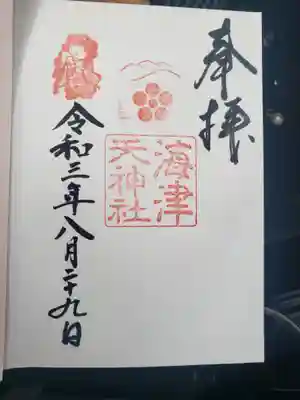 奉拝
海津
天神社
令和三年八月二十九日